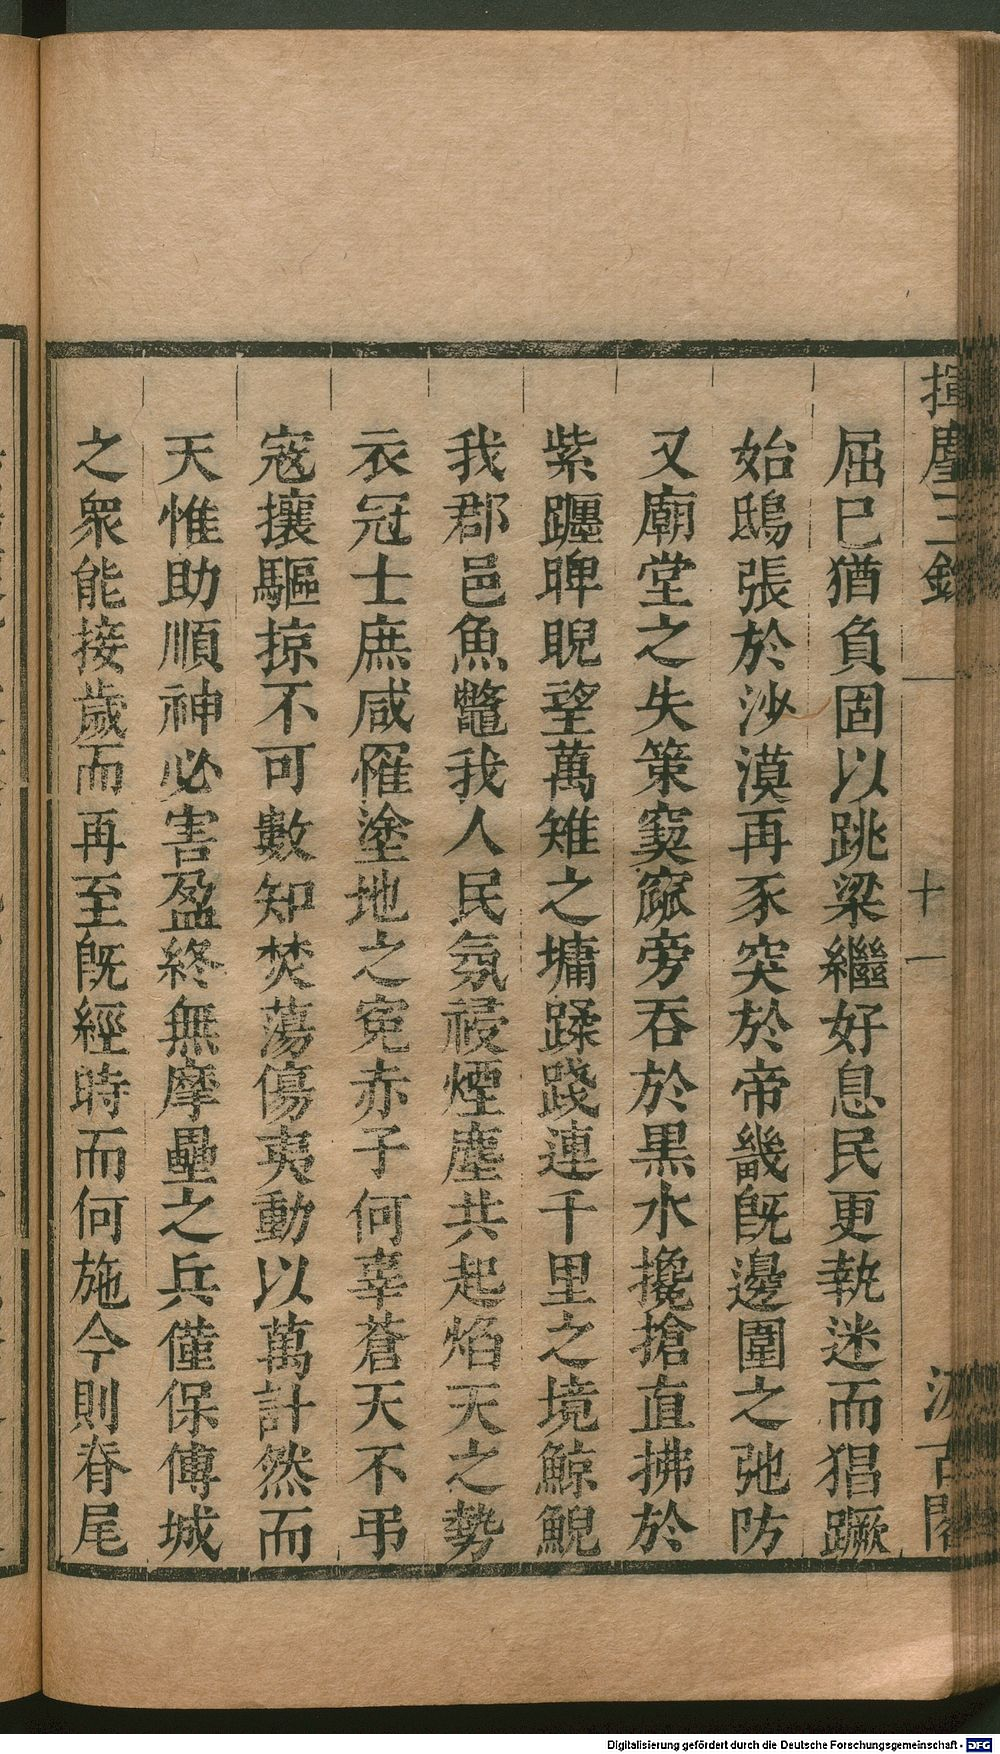 揮麈三錄
十一
汲古閣
屈巳猶負固以跳梁繼好息民更執迷而猖蹶
始鴟張於沙漠再豕突於帝畿旣邊圍之弛防
又廟堂之失策窫窳旁吞於黒水攙搶直拂於
紫躔睥睨望萬雉之墉蹂踐連千里之境鯨鯢
我郡邑魚鼈我人民氛祲煙塵共起焰天之勢
衣冠士庶咸罹塗地之寃赤子何辜蒼天不弔
宼攘驅掠不可數知焚蕩傷夷動以萬計然而
天惟助順神必害盈終無摩壘之兵僅保傅城
之衆能接歲而再至旣經時而何施今則脊尾
Digitalisierung gefördert durch die Deutsche Forschungsgemeinschaft - DFG